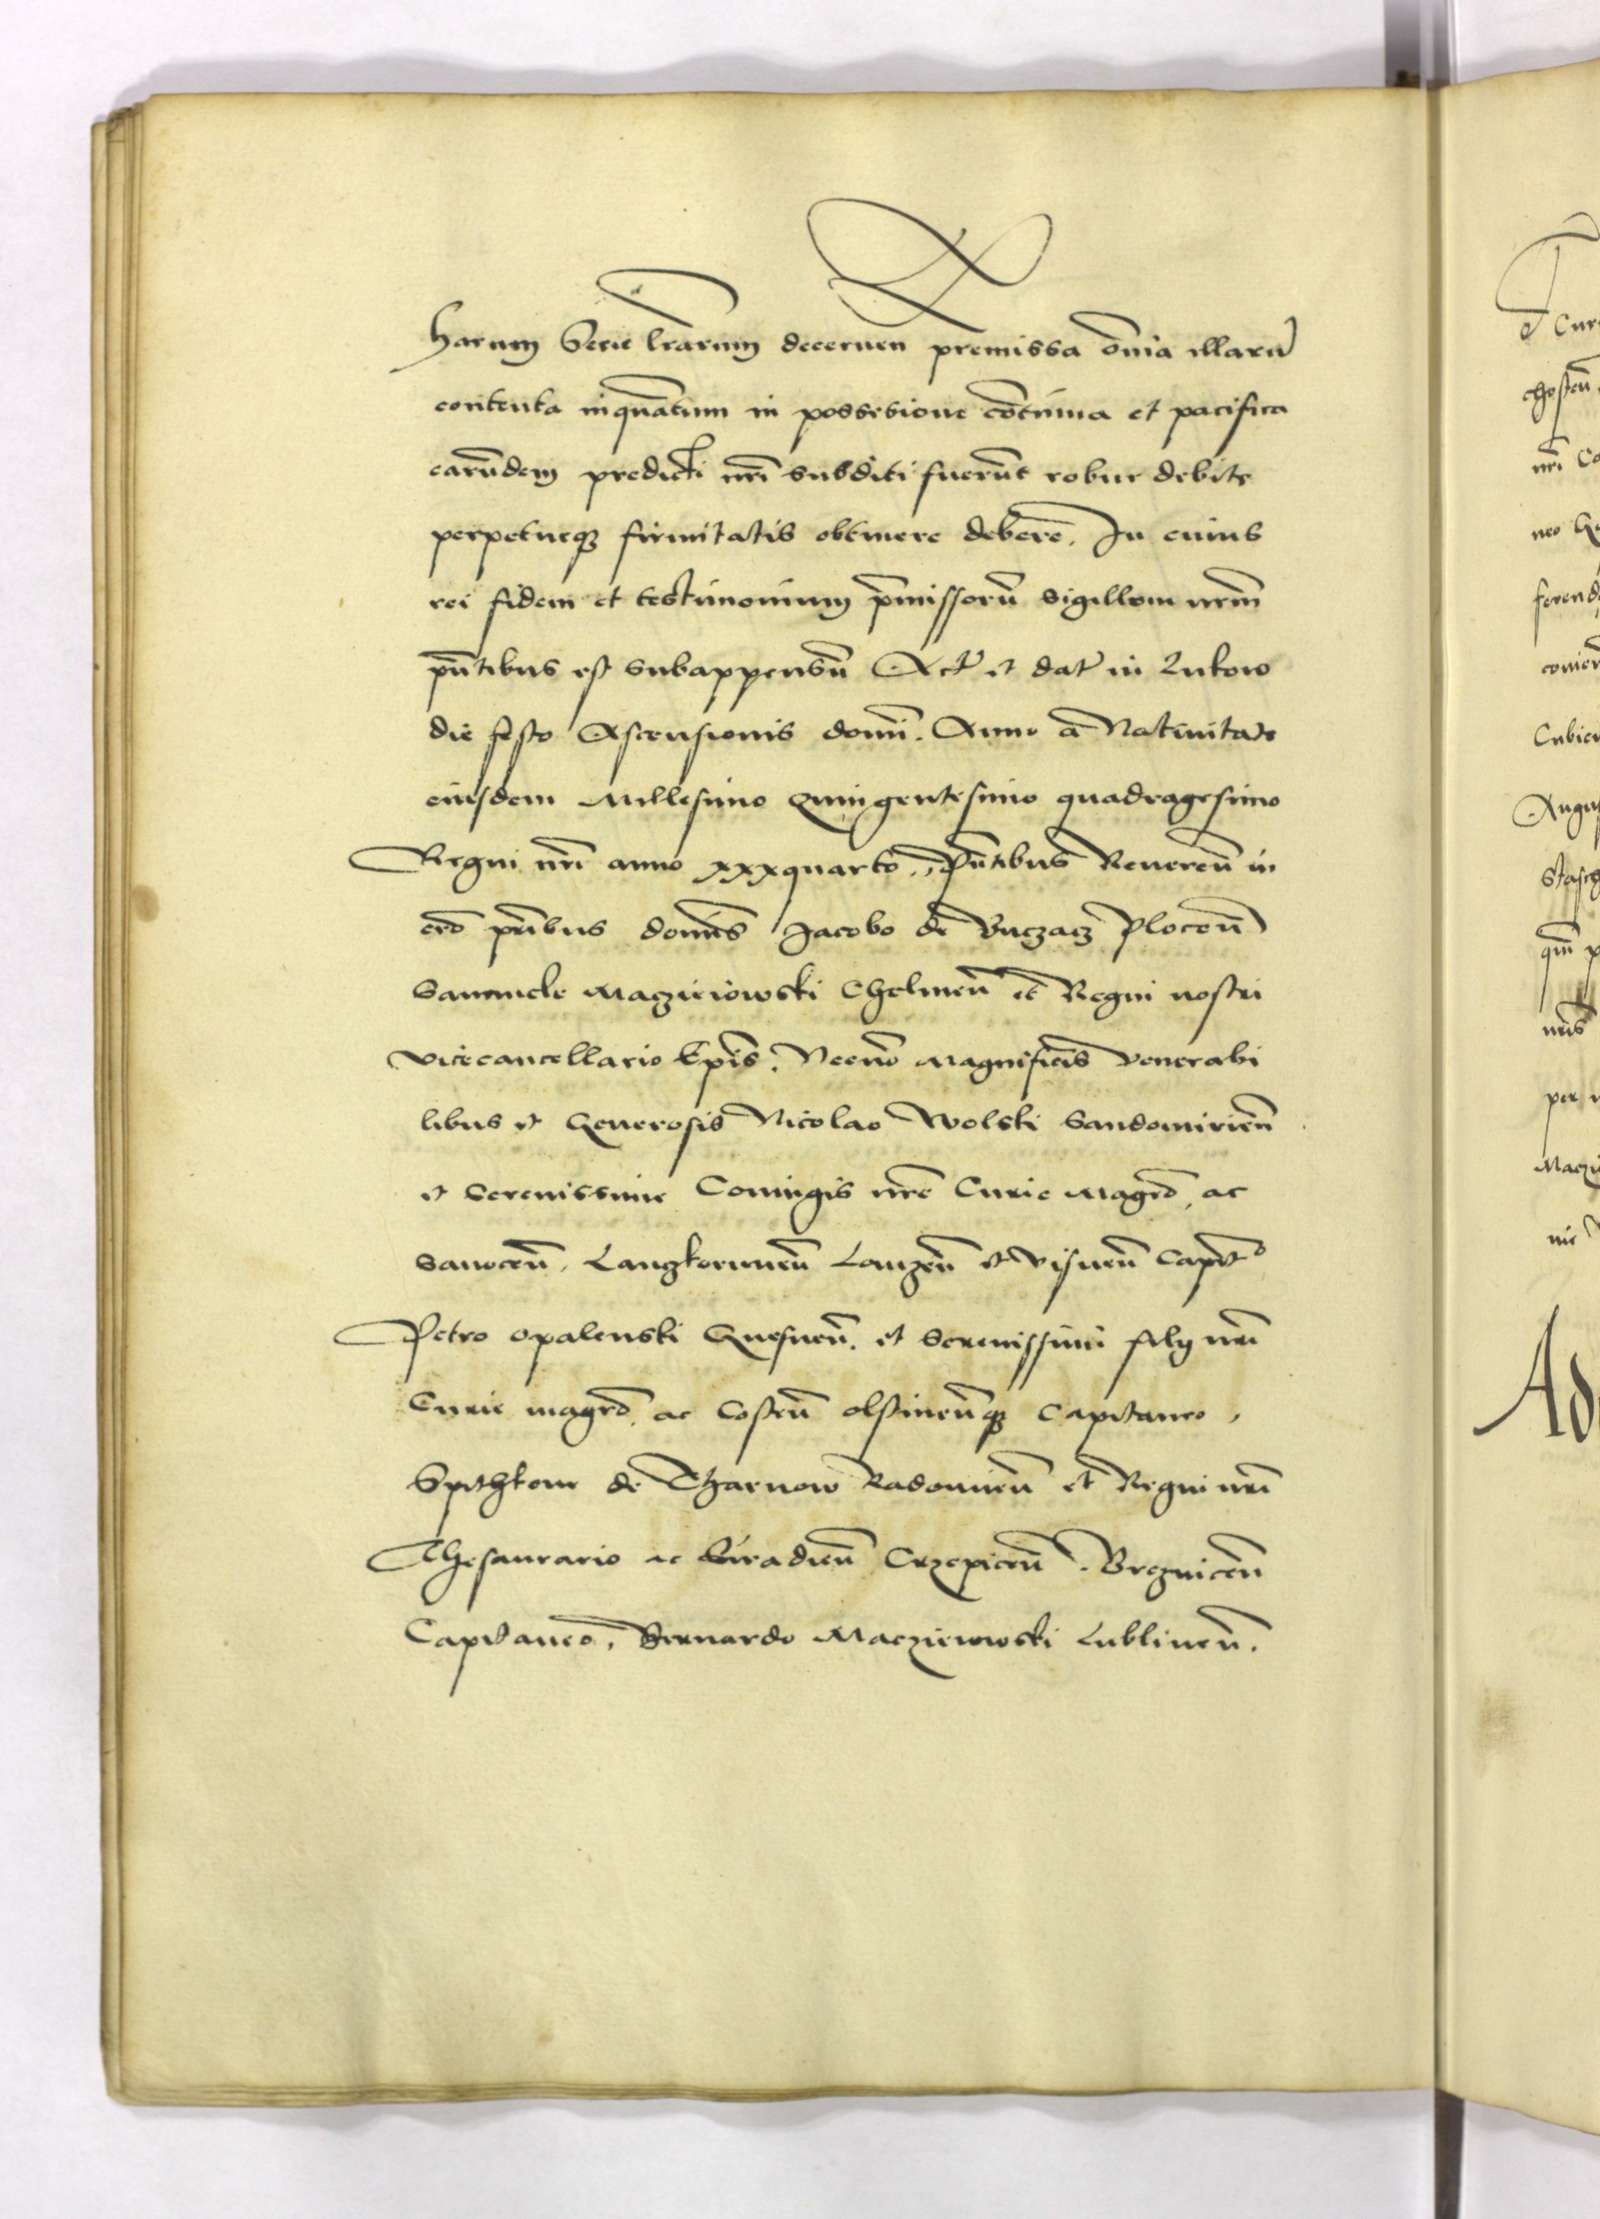 harum Serie lrarum decernen premissa oīnia illarū
contenta inquātum in possesione cōtinua et pacifica
earūdem predicti nrī subditi fuerūt robur debite
perpetueqz firmitatis obtinere debere. In cuius
rei fidem et testimonium p̄missorū sigillum nrm̄
pn̄tibus est subappensū Act et dat in Lukow
die festo Ascensionis domī. Anno a Natiuitate
eiusdem Millesimo Quingentesimo quadragesimo
Regni nrī anno xxxquarto, Pn̄tibus Reuereñ in
crō pr̄ibus domīs Jacobo de Buczacz Ploceñ
Samuele Maczieiowski Chelmeñ et Regni nostri
vicecancellario Ep̄is. Necnō Magnificis Venerabi
libus et Generosis Nicolao Wolski Sandomirieñ
et Serenissime Coniugis nrē Curie Magrō, ac
Sanoceñ, Lanzkoruneñ Lomzeñ et Visneñ Capit̄o
Petro Opalenski Gnesneñ. et Serenissimi filij nrī
Curie magrō ac Costeñ olstineñqz Capitaneo,
Spithkone de Tharnow Radomieñ et Regni nrī
Thesaurario ac Siradieñ Crzepiceñ. Brezniceñ
Capitaneo, Bernardo Maczieiowski Lublineñ.